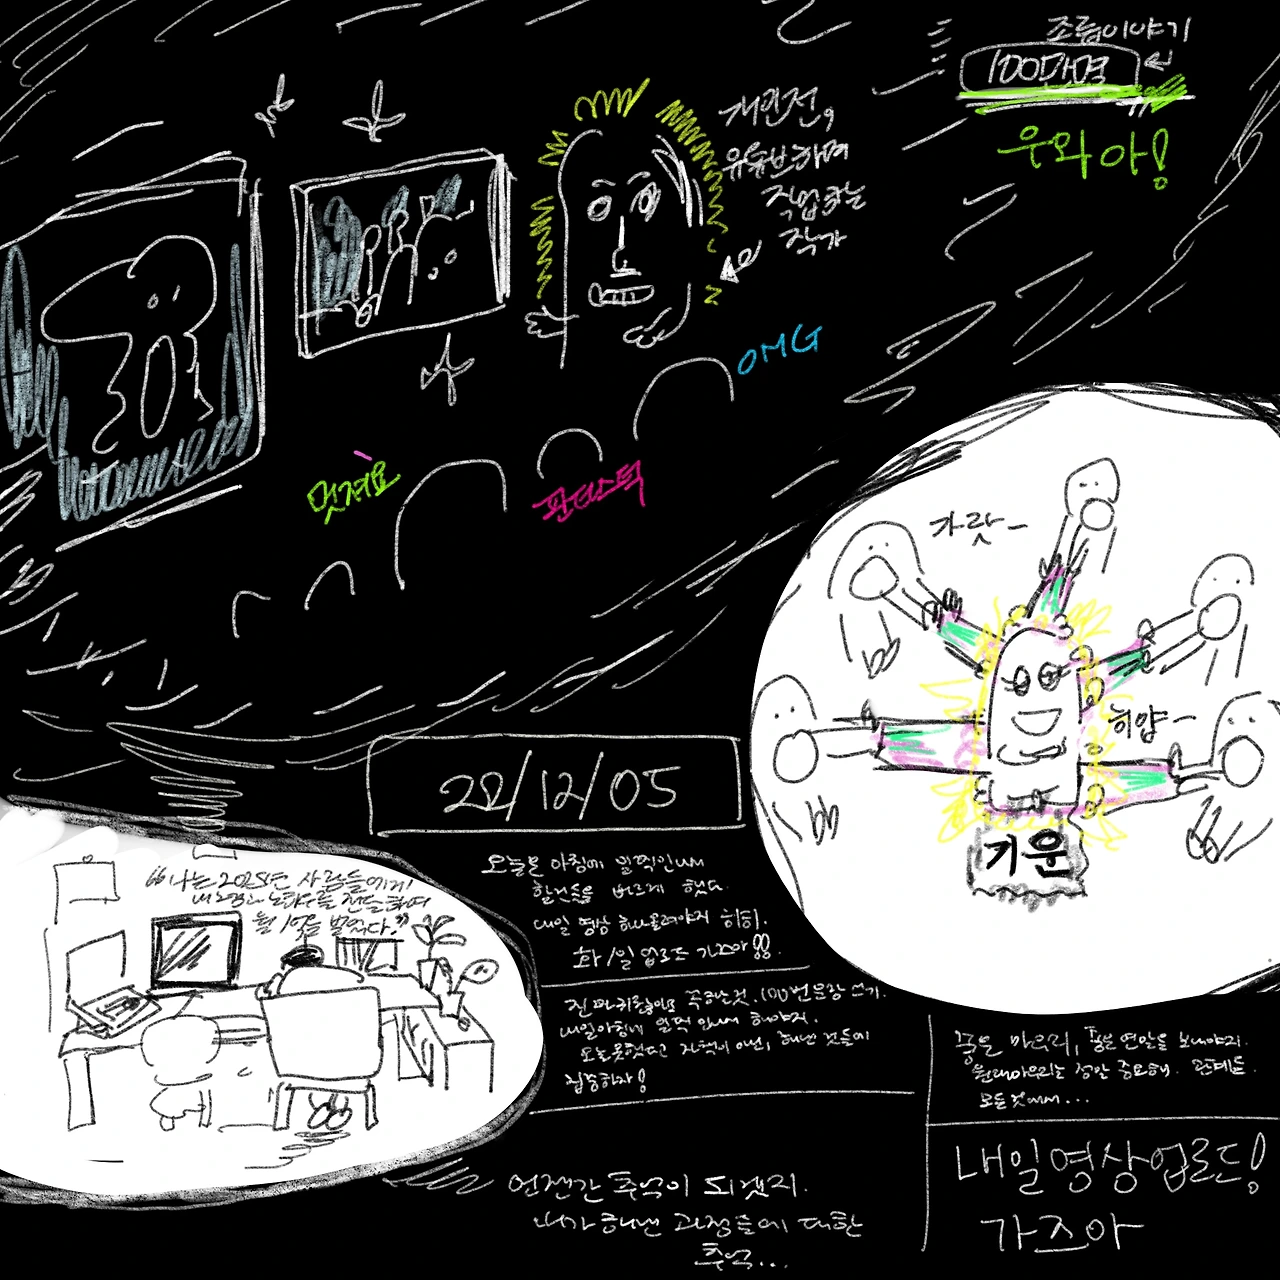 조렙이야기
100만명
우와아!
개인전,
유튜브하며
작업하는
작가
OMG
멋져요
판타스틱
가랏~
히얍~
기운
22/12/05
"나는 2025년 사람들에게
내 노하우를 전달하며
월 1억을 벌었다."
오늘은 아침에 일찍 인나
할것들을 빠르게 했다.
내일 영상 하나 올려야지 히히.
화 1일 업로드 가즈아!!
100번 문장 쓰기.
내일 아침에 일찍 인나서 해야지.
오늘 못했다고 자책이 아닌, 해낸 것들에
집중하자!
좋은 마무리, 좋은 연말을 보내야지.
정말 중요해. 관계든
모든것에서...
언젠간 추억이 되겠지.
내가 해낸 과정들에 대한
추억...
내일 영상 업로드!
가즈아